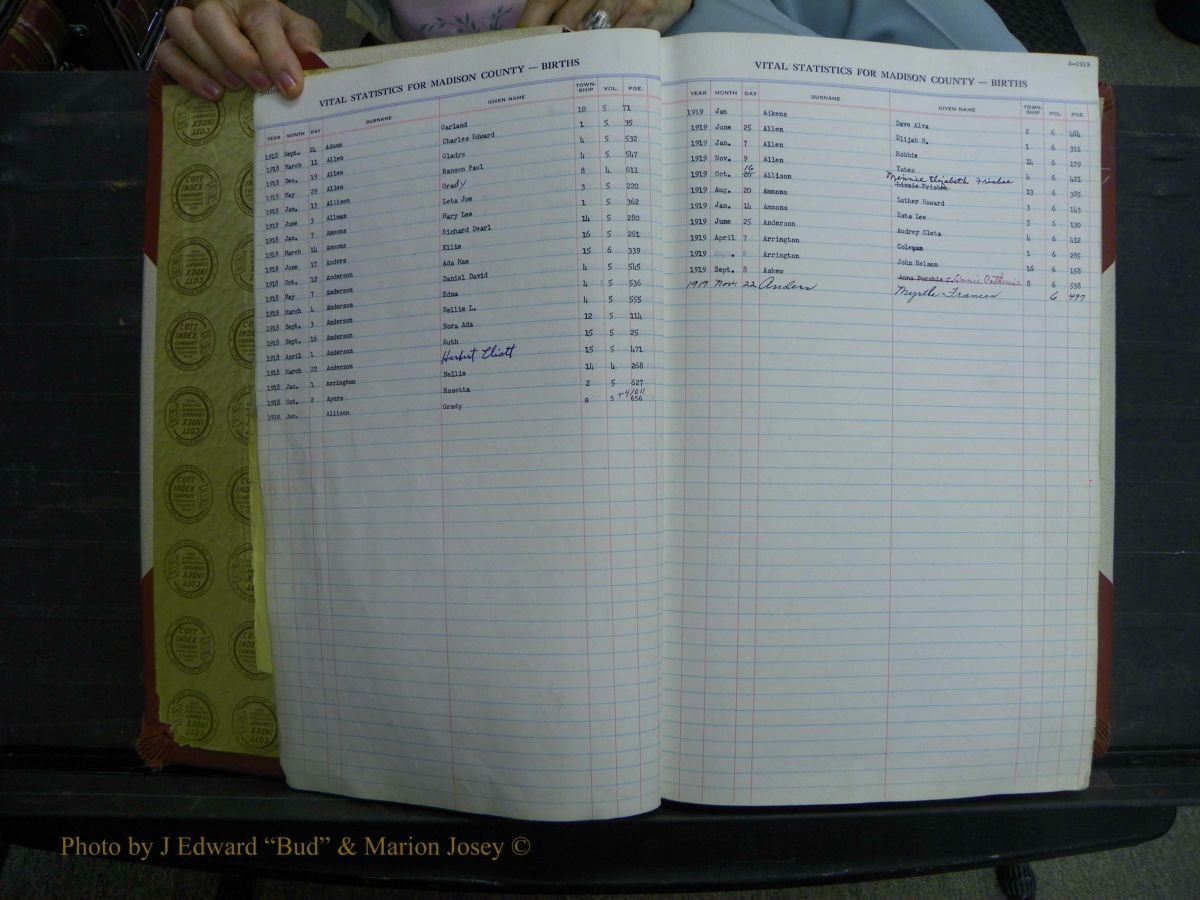 VITAL STATISTICS FOR MADISON COUNTY — BIRTHS
YEAR MONTH DAY SURNAME GIVEN NAME TOWN-SHIP VOL. PGE.
1918 Sept. 24 Adams Garland 10 5 71
1918 March 11 Allen Charles Edward 1 5 35
1918 Dec. 19 Allen Gladys 4 5 532
1918 May 29 Allen Ranson Paul 4 5 547
1918 Jan. 13 Allison Grady 8 4 611
1918 June 3 Allman Leta Joe 3 5 220
1918 Jan. 7 Ammons Mary Lee 1 5 362
1918 March 14 Ammons Richard Dearl 14 5 280
1918 June 17 Anders Ellie 16 5 261
1918 Oct. 12 Anderson Ada Mae 15 6 339
1918 May 7 Anderson Daniel David 4 5 545
1918 March 4 Anderson Edna 4 5 536
1918 Sept. 3 Anderson Nellie L. 4 5 555
1918 Sept. 16 Anderson Nora Ada 12 5 114
1918 April 1 Anderson Ruth 15 5 25
1918 March 22 Anderson Herbert Eliott 15 5 471
1918 Jan. 1 Arrington Nellie 14 4 268
1918 Oct. 2 Ayers Rosetta 2 5 627
+4/611
1918 Jan. Allison Grady 8 5 656
A-1919
VITAL STATISTICS FOR MADISON COUNTY — BIRTHS
YEAR MONTH DAY SURNAME GIVEN NAME TOWN-SHIP VOL. PGE.
1919 Jan Aikens Dave Alva 2 6 464
1919 June 25 Allen Elijah B. 1 6 311
1919 Jan. 7 Allen Robbie 14 6 179
1919 Nov. 9 Allen Yates 4 6 421
1919 Oct. 16 Allison Minnie Elizabeth Frisbee 13 6 385
1919 Aug. 20 Ammons Luther Howard 3 6 143
1919 Jan. 14 Ammons Esta Lee 3 6 130
1919 June 25 Anderson Audrey Oleta 4 6 412
1919 April 7 Arrington Coleman 1 6 285
1919 Arrington John Nelson 16 6 158
1919 Sept. 8 Askew Anna Porshia C. Annie Catherine 8 6 538
1919 Nov. 22 Anders Myrtle Frances 6 497
COTT INDEX COMPANY
Photo by J Edward “Bud” & Marion Josey ©